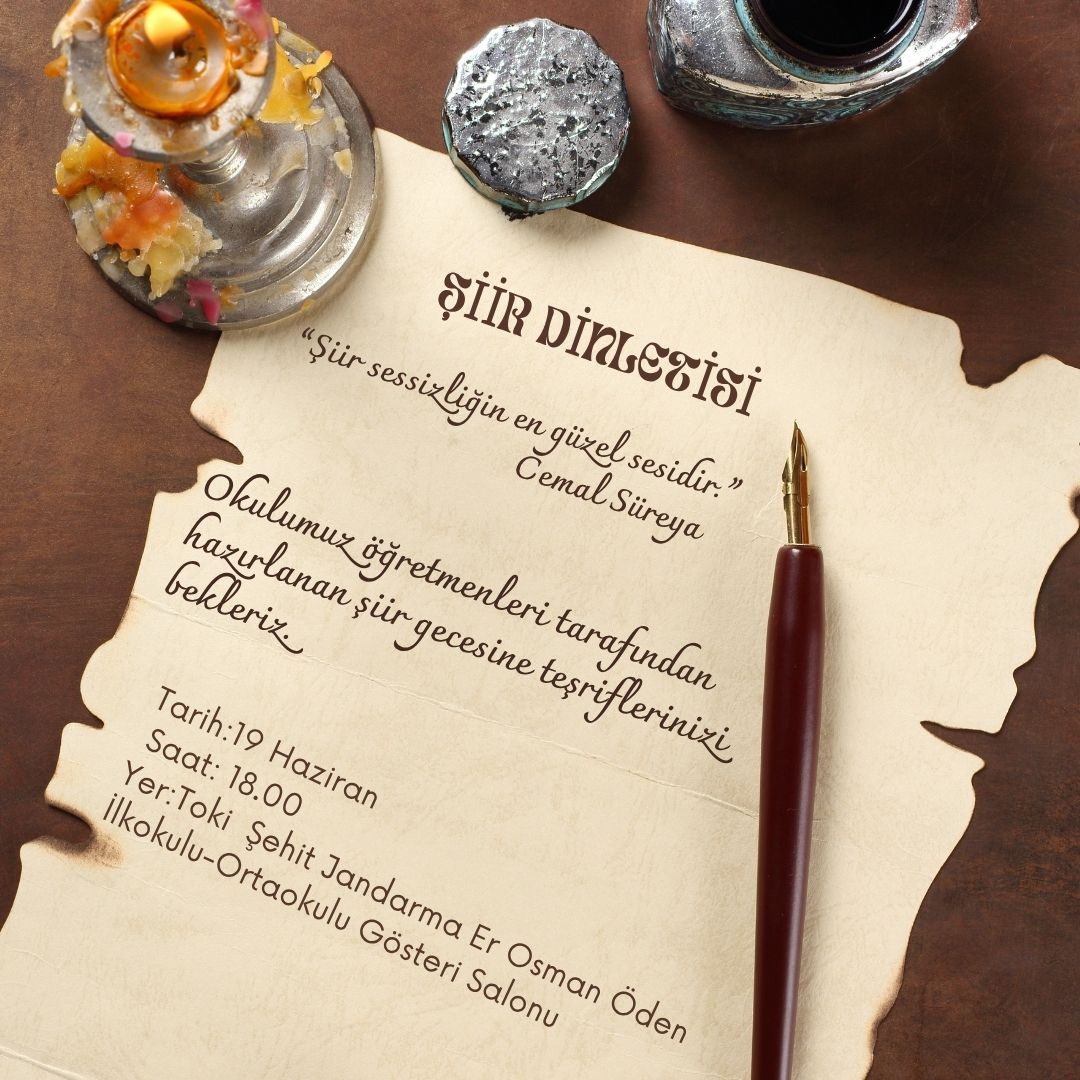 ŞİİR DİNLETİSİ
“Şiir sessizliğin en güzel sesidir.”
Cemal Süreya
Okulumuz öğretmenleri tarafından
hazırlanan şiir gecesine teşriflerinizi
bekleriz.
Tarih:19 Haziran
Saat: 18.00
Yer:Toki Şehit Jandarma Er Osman Öden
İlkokulu-Ortaokulu Gösteri Salonu